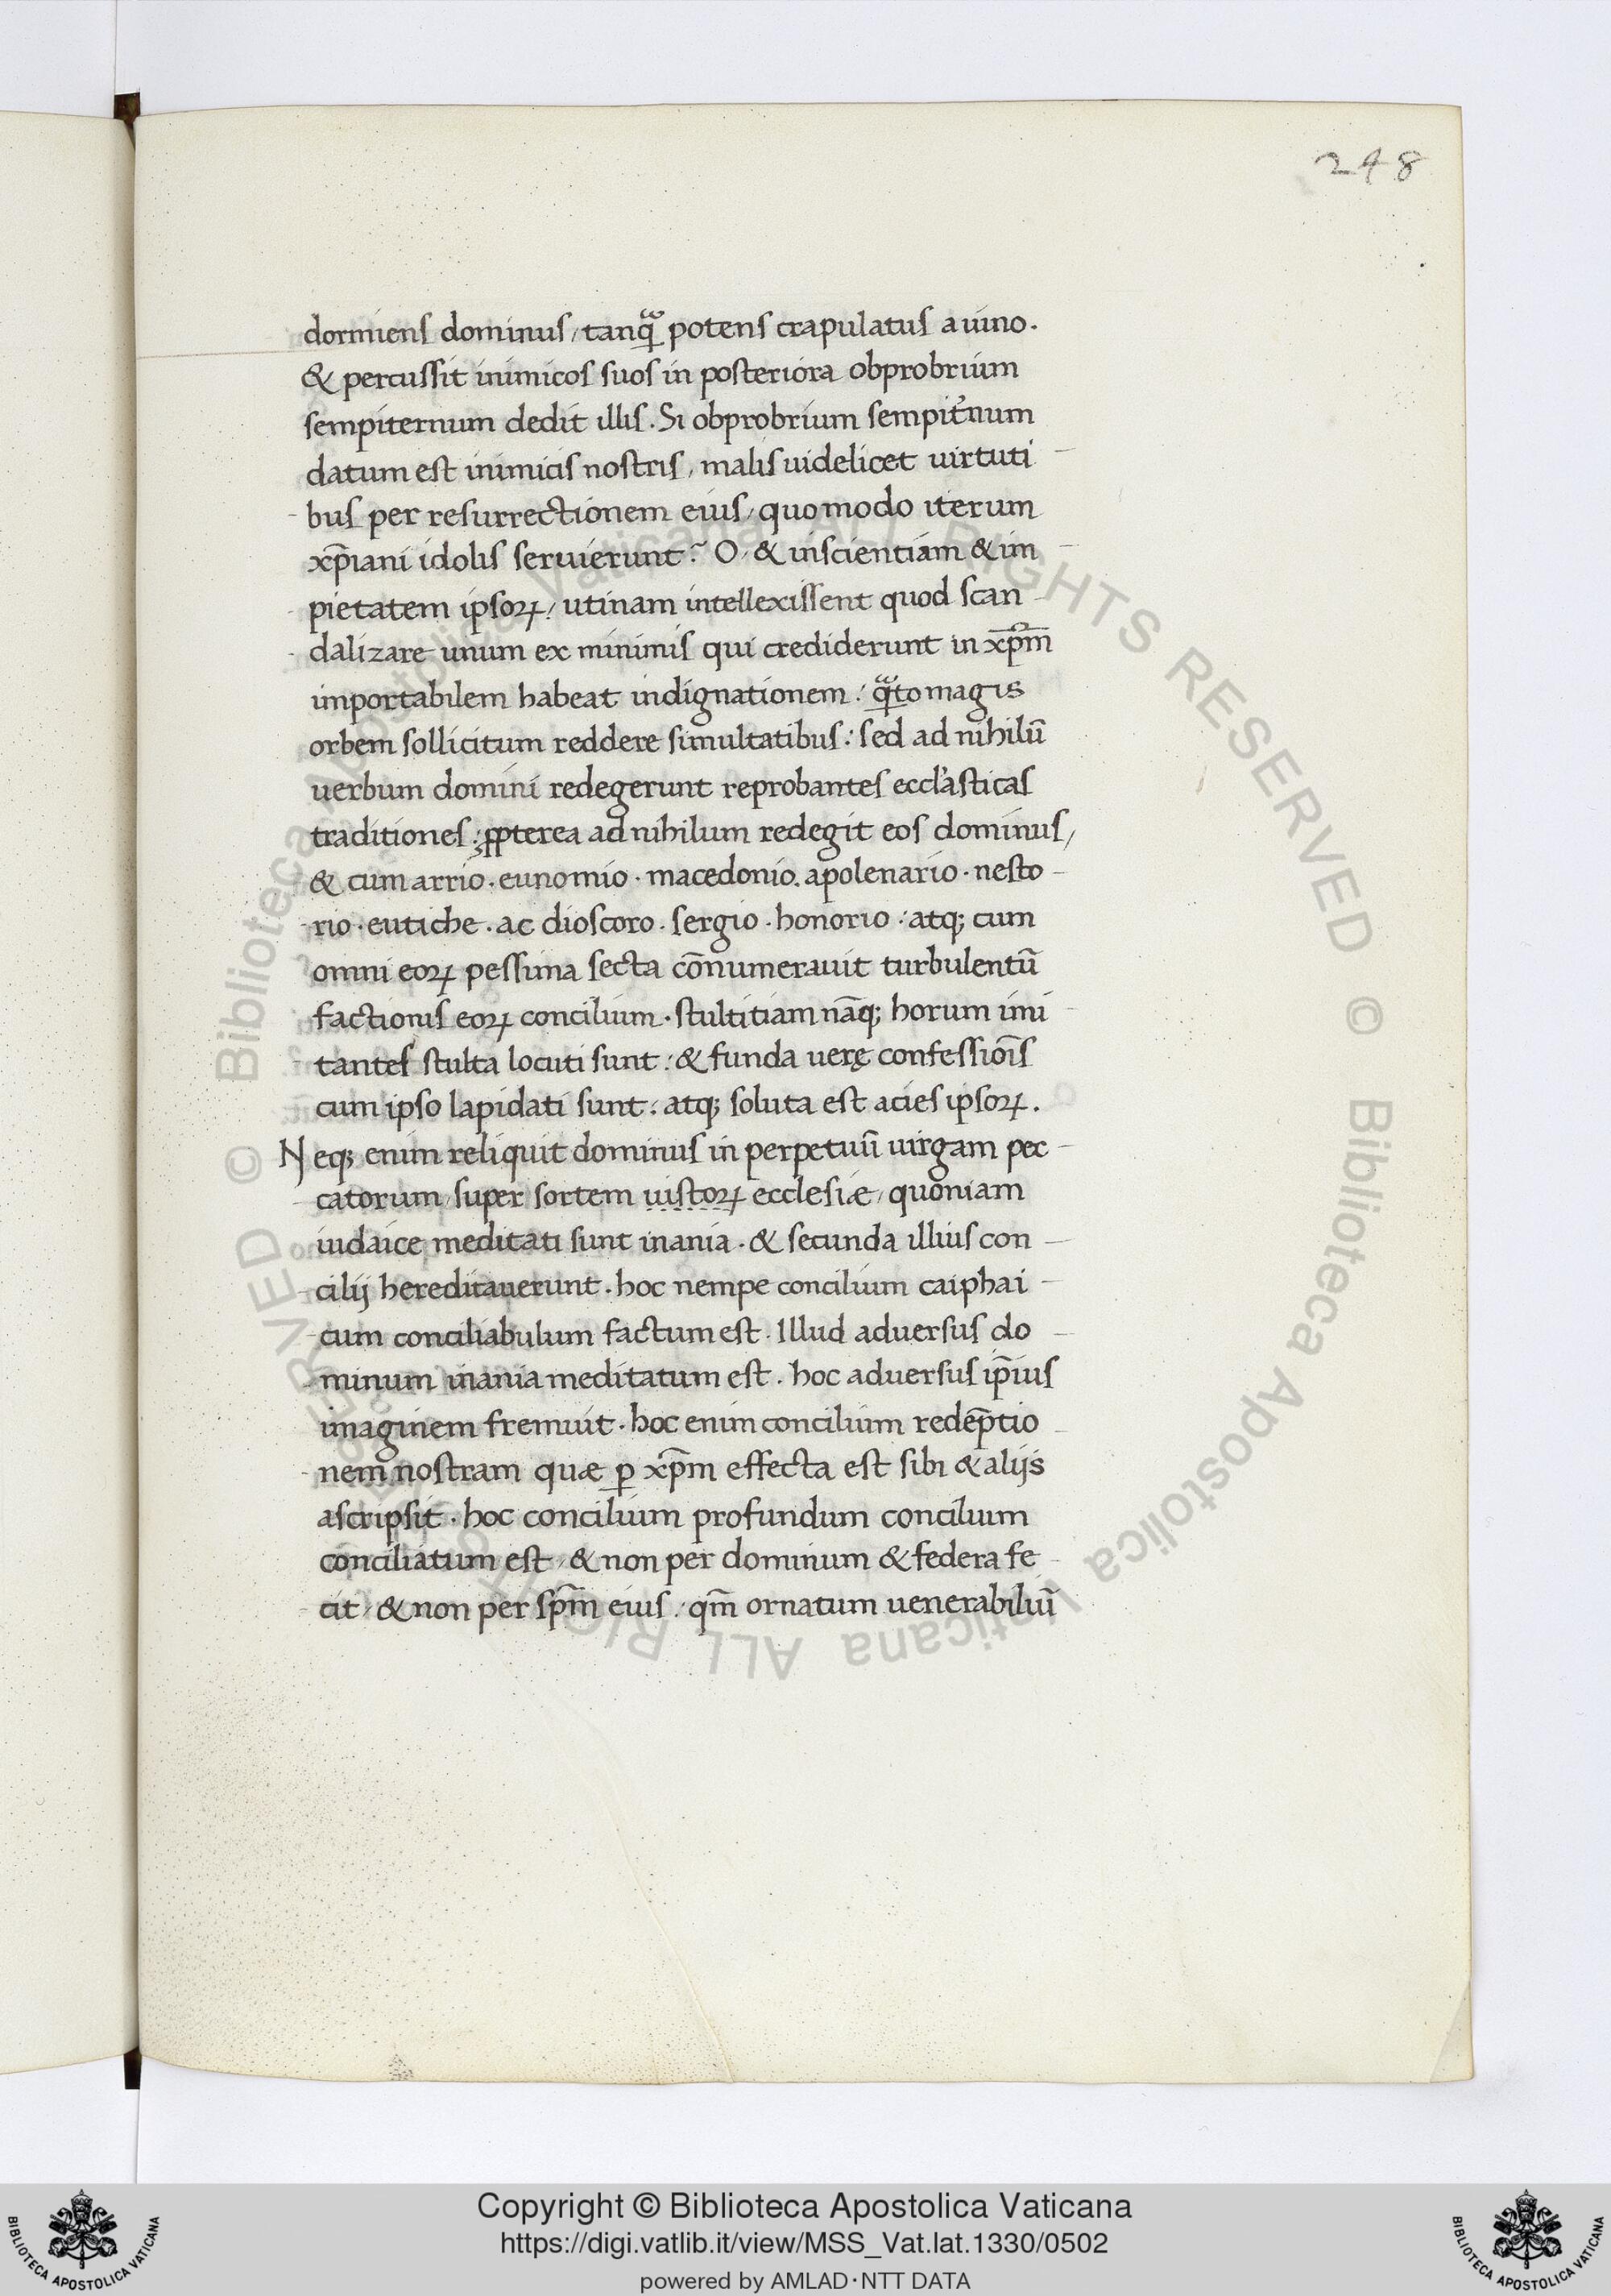 248
dormiens dominus, tanq̃ potens crapulatus a uino.
& percussit inimicos suos in posteriora obprobrium
sempiternum dedit illis. Si obprobrium sempit̉num
datum est inimicis nostris, malis uidelicet uirtuti-
bus per resurrectionem eius, quomodo iterum
xp̄iani idolis seruierunt? O, & inscientiam & im-
pietatem ipsoꝝ, utinam intellexissent quod scan-
dalizare unum ex minimis qui crediderunt in xp̄m
importabilem habeat indignationem: qᷓto magis
orbem sollicitum reddere simultatibus: sed ad nihilū
uerbum domini redegerunt reprobantes eccl'asticas
traditiones: ꝓpterea ad nihilum redegit eos dominus,
& cum arrio. eunomio. macedonio. apolenario. nesto-
rio. eutiche. ac dioscoro. sergio. honorio: atq; cum
omni eoꝝ pessima secta cōnumerauit turbulentū
factionis eoꝝ concilium. stultitiam nāq; horum imi-
tantes stulta locuti sunt: & funda uerę confessiōis
cum ipso lapidati sunt: atq; soluta est acies ipsoꝝ.
Neq; enim reliquit dominus in perpetuū uirgam pec-
catorum, super sortem iustoꝝ ecclesiæ, quoniam
iudaice meditati sunt inania. & secunda illius con-
cilij hereditauerunt. hoc nempe concilium caiphai-
cum conciliabulum factum est. Illud aduersus do-
minum inania meditatum est. hoc aduersus ip̄ius
imaginem fremuit. hoc enim concilium redēptio-
nem nostram quæ ꝑ xp̄m effecta est sibi & alijs
ascripsit. hoc concilium profundum concilium
conciliatum est, & non per dominum & federa fe-
cit, & non per sp̄m eius: qm̄ ornatum uenerabiliū
© Biblioteca Apostolica Vaticana ALL RIGHTS RESERVED © Biblioteca Apostolica Vaticana ALL RIGHTS RESERVED
BIBLIOTECA APOSTOLICA VATICANA
Copyright © Biblioteca Apostolica Vaticana
https://digi.vatlib.it/view/MSS_Vat.lat.1330/0502
powered by AMLAD·NTT DATA
BIBLIOTECA APOSTOLICA VATICANA